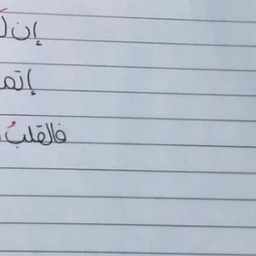 إن
إتم
فالقلبُ